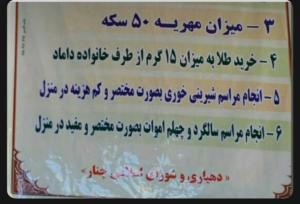 ۳ - میزان مهریه ۵۰ سکه
۴ - خرید طلا به میزان ۱۵ گرم از طرف خانواده داماد
۵ - انجام مراسم شیرینی خوری بصورت مختصر و کم هزینه در منزل
۶ - انجام مراسم سالگرد و چهلم اموات بصورت مختصر و مفید در منزل
« دهیاری و شورای اسلامی چنار »